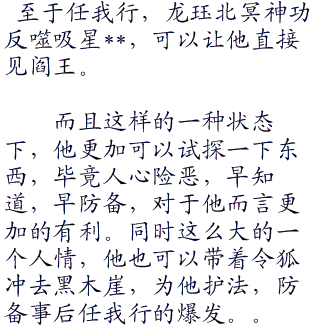 至于任我行，龙珏北冥神功
反噬吸星**，可以让他直接
见阎王。
而且这样的一种状态
下，他更加可以试探一下东
西，毕竟人心险恶，早知
道，早防备，对于他而言更
加的有利。同时这么大的一
个人情，他也可以带着令狐
冲去黑木崖，为他护法，防
备事后任我行的爆发。。